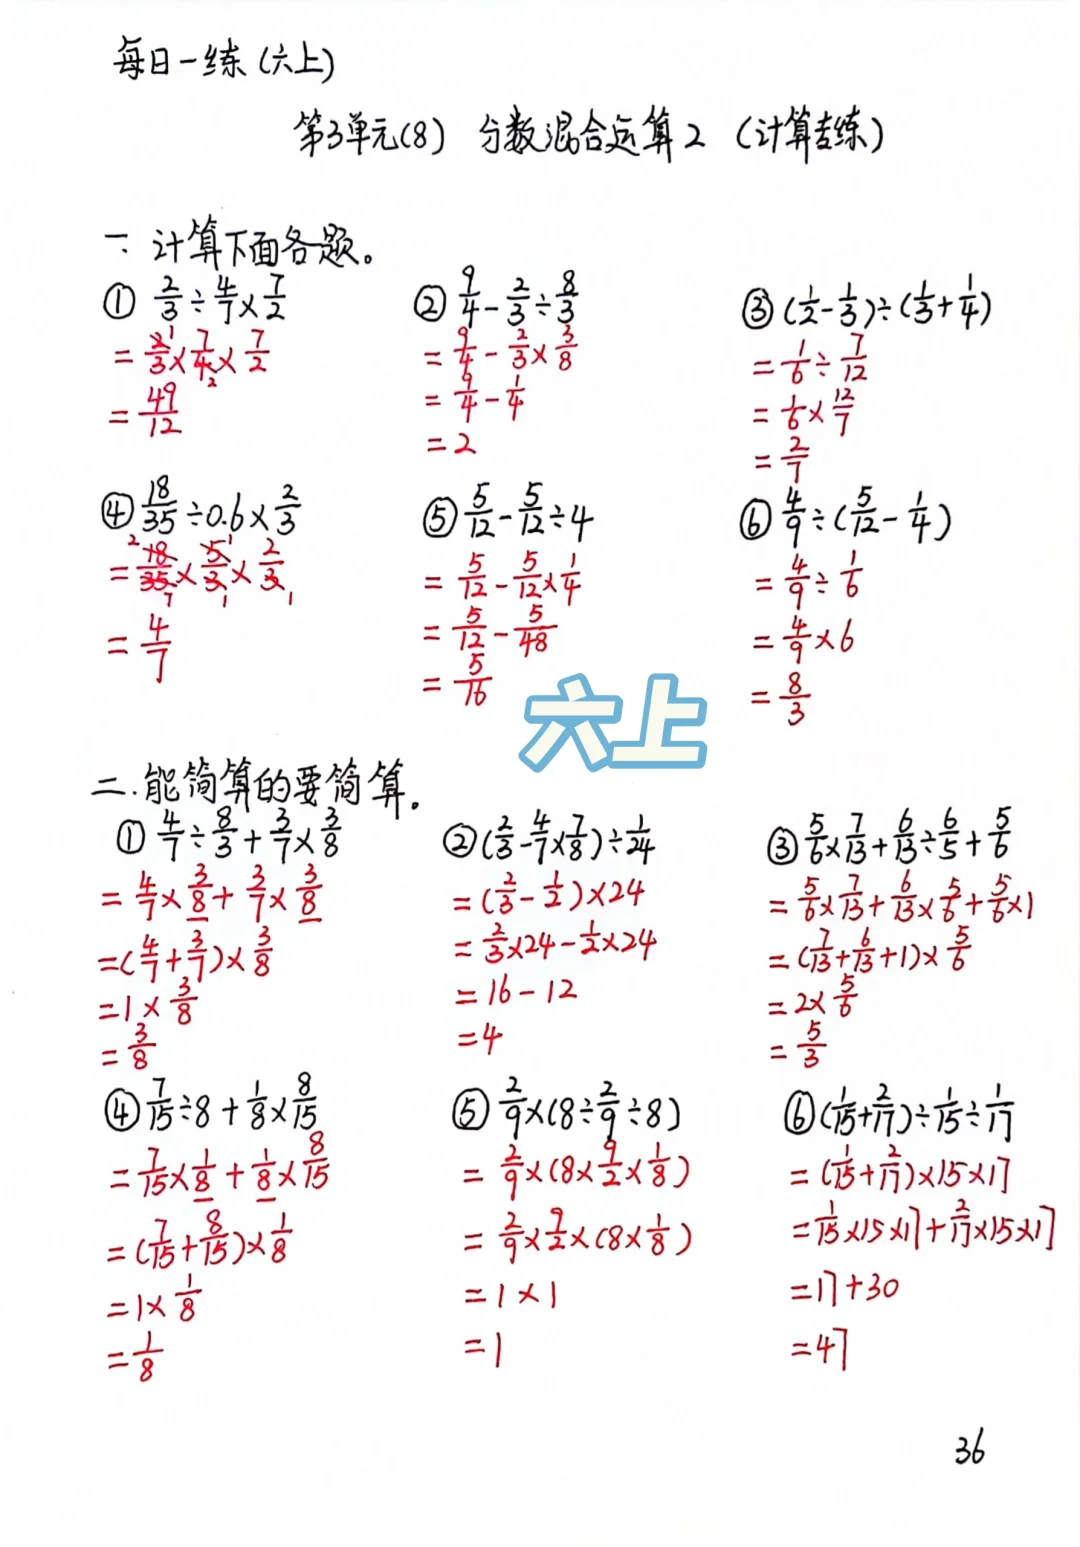 每日一练(六上)
第3单元(8) 分数混合运算2 (计算专练)
一. 计算下面各题。
① 2/3÷4/7×7/2
=2/3×7/4×7/2 1 2
=49/12
② 9/4-2/3÷8/3
=9/4-2/3×3/8
=9/4-1/4
=2
③ (1/2-1/3)÷(1/3+1/4)
=1/6÷7/12
=1/6×12/7
=2/7
④ 18/35÷0.6×2/3
=18/35×5/3×2/3 2 7 1 1 1
=4/7
⑤ 5/12-5/12÷4
=5/12-5/12×1/4
=5/12-5/48
=5/16
⑥ 4/9÷(5/12-1/4)
=4/9÷1/6
=4/9×6
=8/3
六上
二.能简算的要简算。
① 4/7÷8/3+3/7×3/8
=4/7×3/8+3/7×3/8
=(4/7+3/7)×3/8
=1×3/8
=3/8
② (2/3-4/7×7/8)÷1/24
=(2/3-1/2)×24
=2/3×24-1/2×24
=16-12
=4
③ 5/6×7/13+6/13÷6/5+5/6
=5/6×7/13+6/13×5/6+5/6×1
=(7/13+6/13+1)×5/6
=2×5/6
=5/3
④ 7/15÷8+1/8×8/15
=7/15×1/8+1/8×8/15
=(7/15+8/15)×1/8
=1×1/8
=1/8
⑤ 2/9×(8÷2/9÷8)
=2/9×(8×9/2×1/8)
=2/9×9/2×(8×1/8)
=1×1
=1
⑥ (1/15+2/17)÷1/15÷1/17
=(1/15+2/17)×15×17
=1/15×15×17+2/17×15×17
=17+30
=47
36